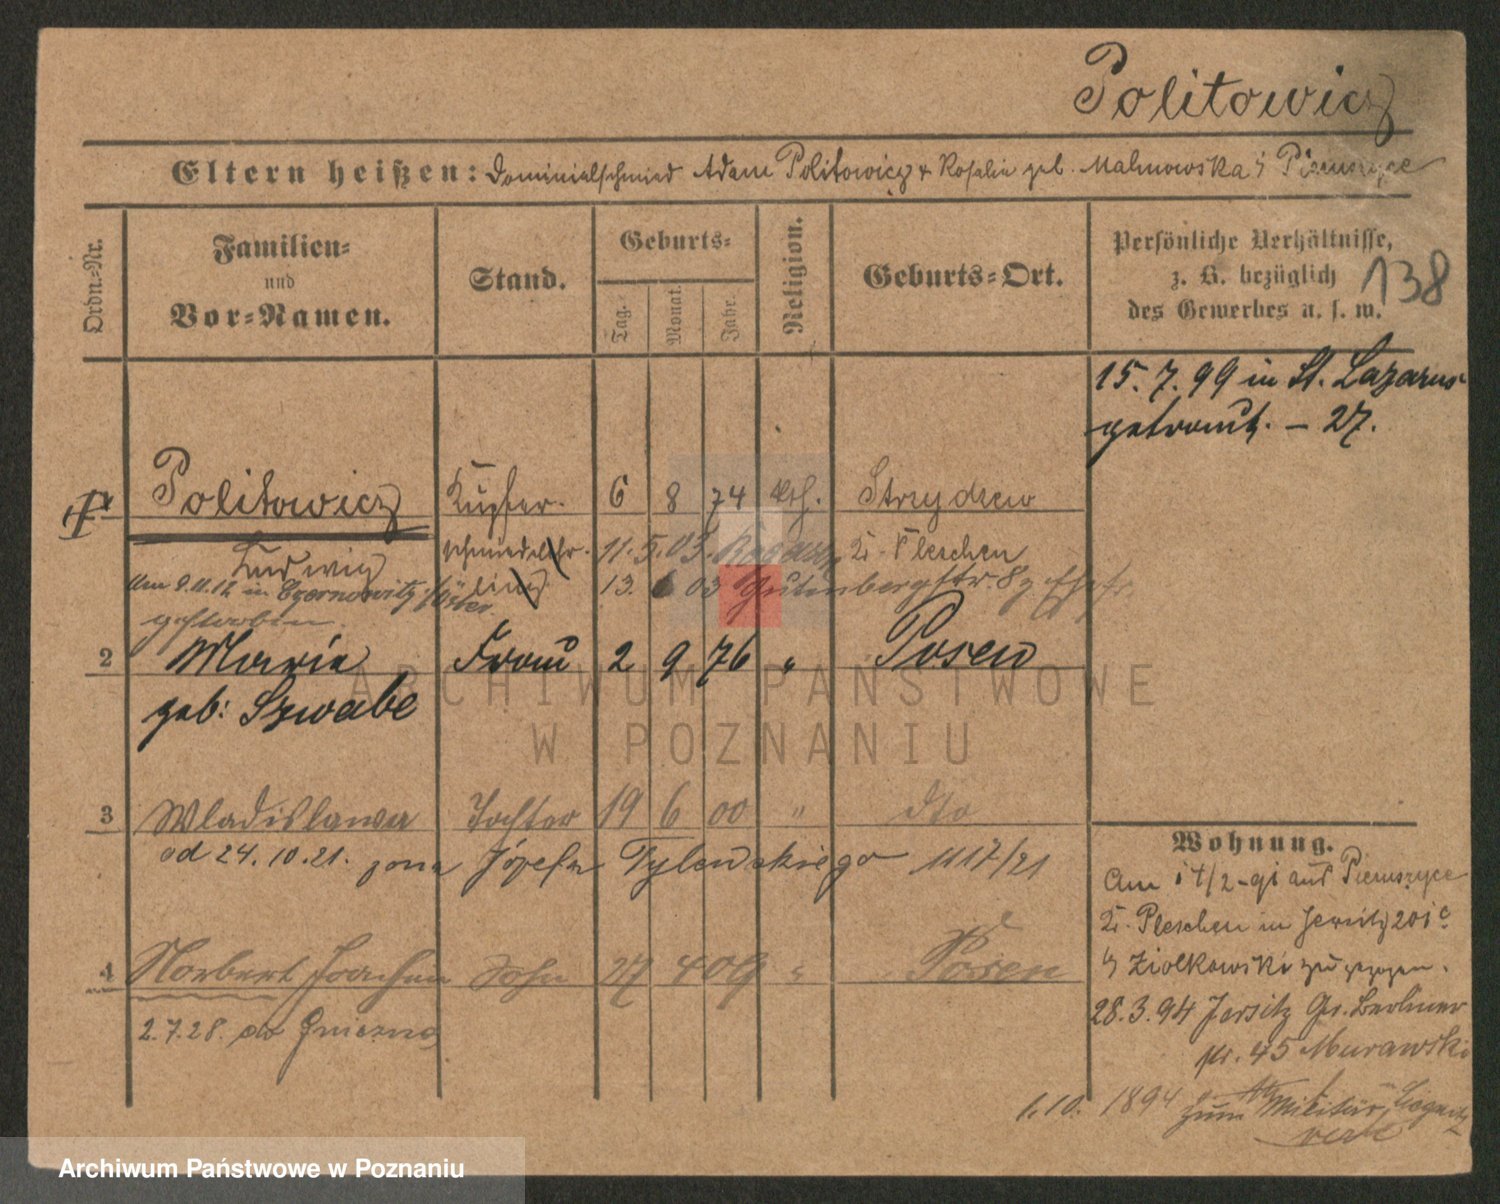 Politowicz
Eltern heißen: Dominialschmied Adam Politowicz & Rosalie geb. Malinowska
Ordn.-Nr.
Familien-
und
Vor-Namen.
Stand.
Geburts-
Tag.
Monat.
Jahr.
Religion.
Geburts-Ort.
Persönliche Verhältnisse,
z. B. bezüglich
des Gewerbes u. s. w.
138
15. 7. 99 in St. Lazarus
getraut. – 27.
1 Politowicz Kupfer- 6 8 74 kth. Strzydzew
Ludwig schmiedelehr- 11. 5. 03. Kr. Pleschen
am 9.11.12 in Czernowitz ling 13. 6 03 Gutenbergstr.
gestorben.
2 Maria Frau 2 9 76 " Posen
geb: Szwabe
3 Wladislawa Tochter 19 6 00 " dto
od 24.10.21. żona Józefa Tylewskiego 1117/21
4 Norbert Joachim Sohn 27 4 09 " Posen
2.7.28. do Gniezna
Wohnung.
Am aus
Kr. Pleschen in Jersitz 201c
b/ Ziolkowski zugezogen.
28.3.94 Jersitz Gr. Berliner
str. 45 Murawski
1.10. 1894 zum Militär
ARCHIWUM PAŃSTWOWE
W POZNANIU
Archiwum Państwowe w Poznaniu